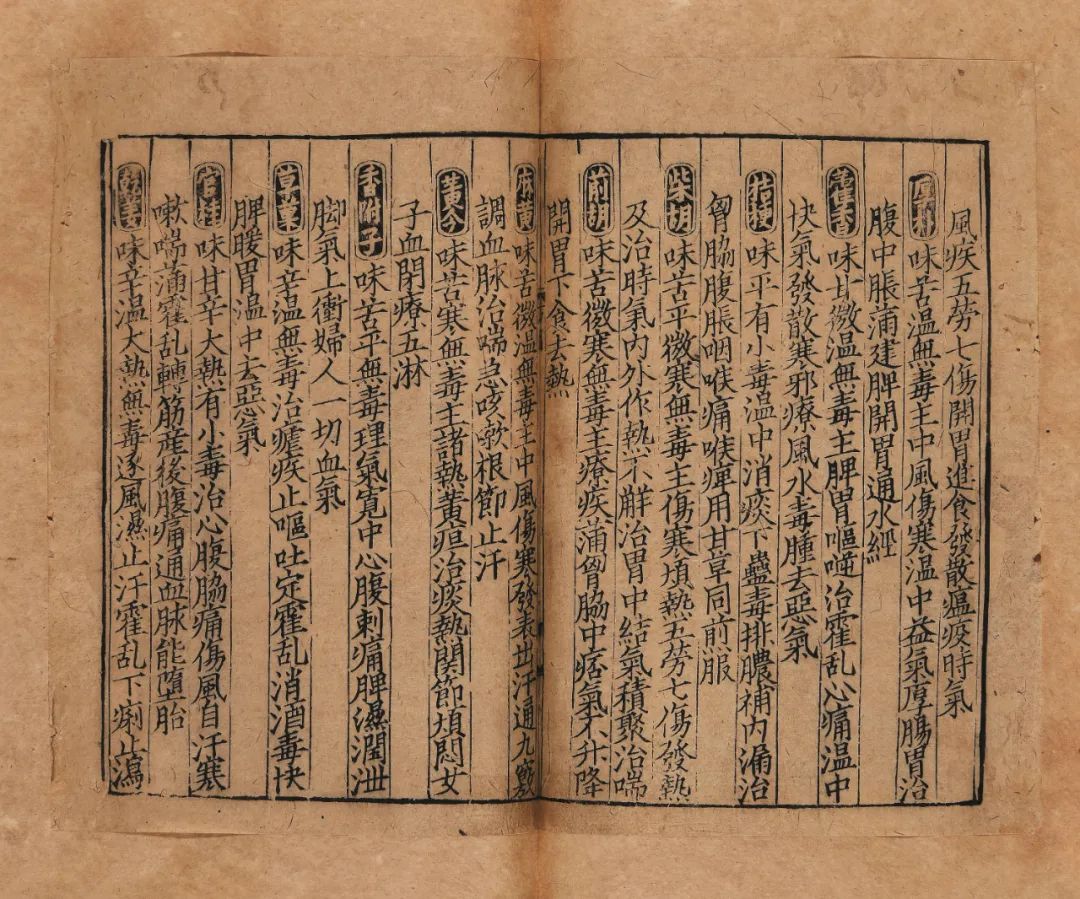 風疾五勞七傷開胃進食發散瘟疫時氣
厚朴 味苦温無毒主中風傷寒温中益氣厚腸胃治
腹中脹蒲建脾開胃通水經
藿香 味甘微温無毒主脾胃嘔噦治霍乱心痛温中
快氣發散寒邪療風水毒腫去惡氣
桔梗 味平有小毒温中消痰下蠱毒排膿補内漏治
胷脇腹脹咽喉痛喉痺用甘草同煎服
柴胡 味苦平微寒無毒主傷寒煩熱五勞七傷發熱
及治時氣内外作熱不解治胃中結氣積聚治喘
前胡 味苦微寒無毒主療疾蒲胷脇中痞氣不升降
開胃下食去熱
麻黄 味苦微温無毒主中風傷寒發表出汗通九竅
調血脉治喘急咳嗽根節止汗
黄芩 味苦寒無毒主諸熱黄疸治痰熱関節煩悶女
子血閉療五淋
香附子 味苦平無毒理氣寛中心腹刺痛脾濕濶泄
脚氣上衝婦人一切血氣
草菓 味辛温無毒治瘧疾止嘔吐定霍乱消酒毒快
脾暖胃温中去惡氣
官桂 味甘辛大熱有小毒治心腹脇痛傷風自汗寒
嗽喘蒲霍乱轉筋産後腹痛通血脉能堕胎
乾姜 味辛温大熱無毒逐風濕止汗霍乱下痢止瀉